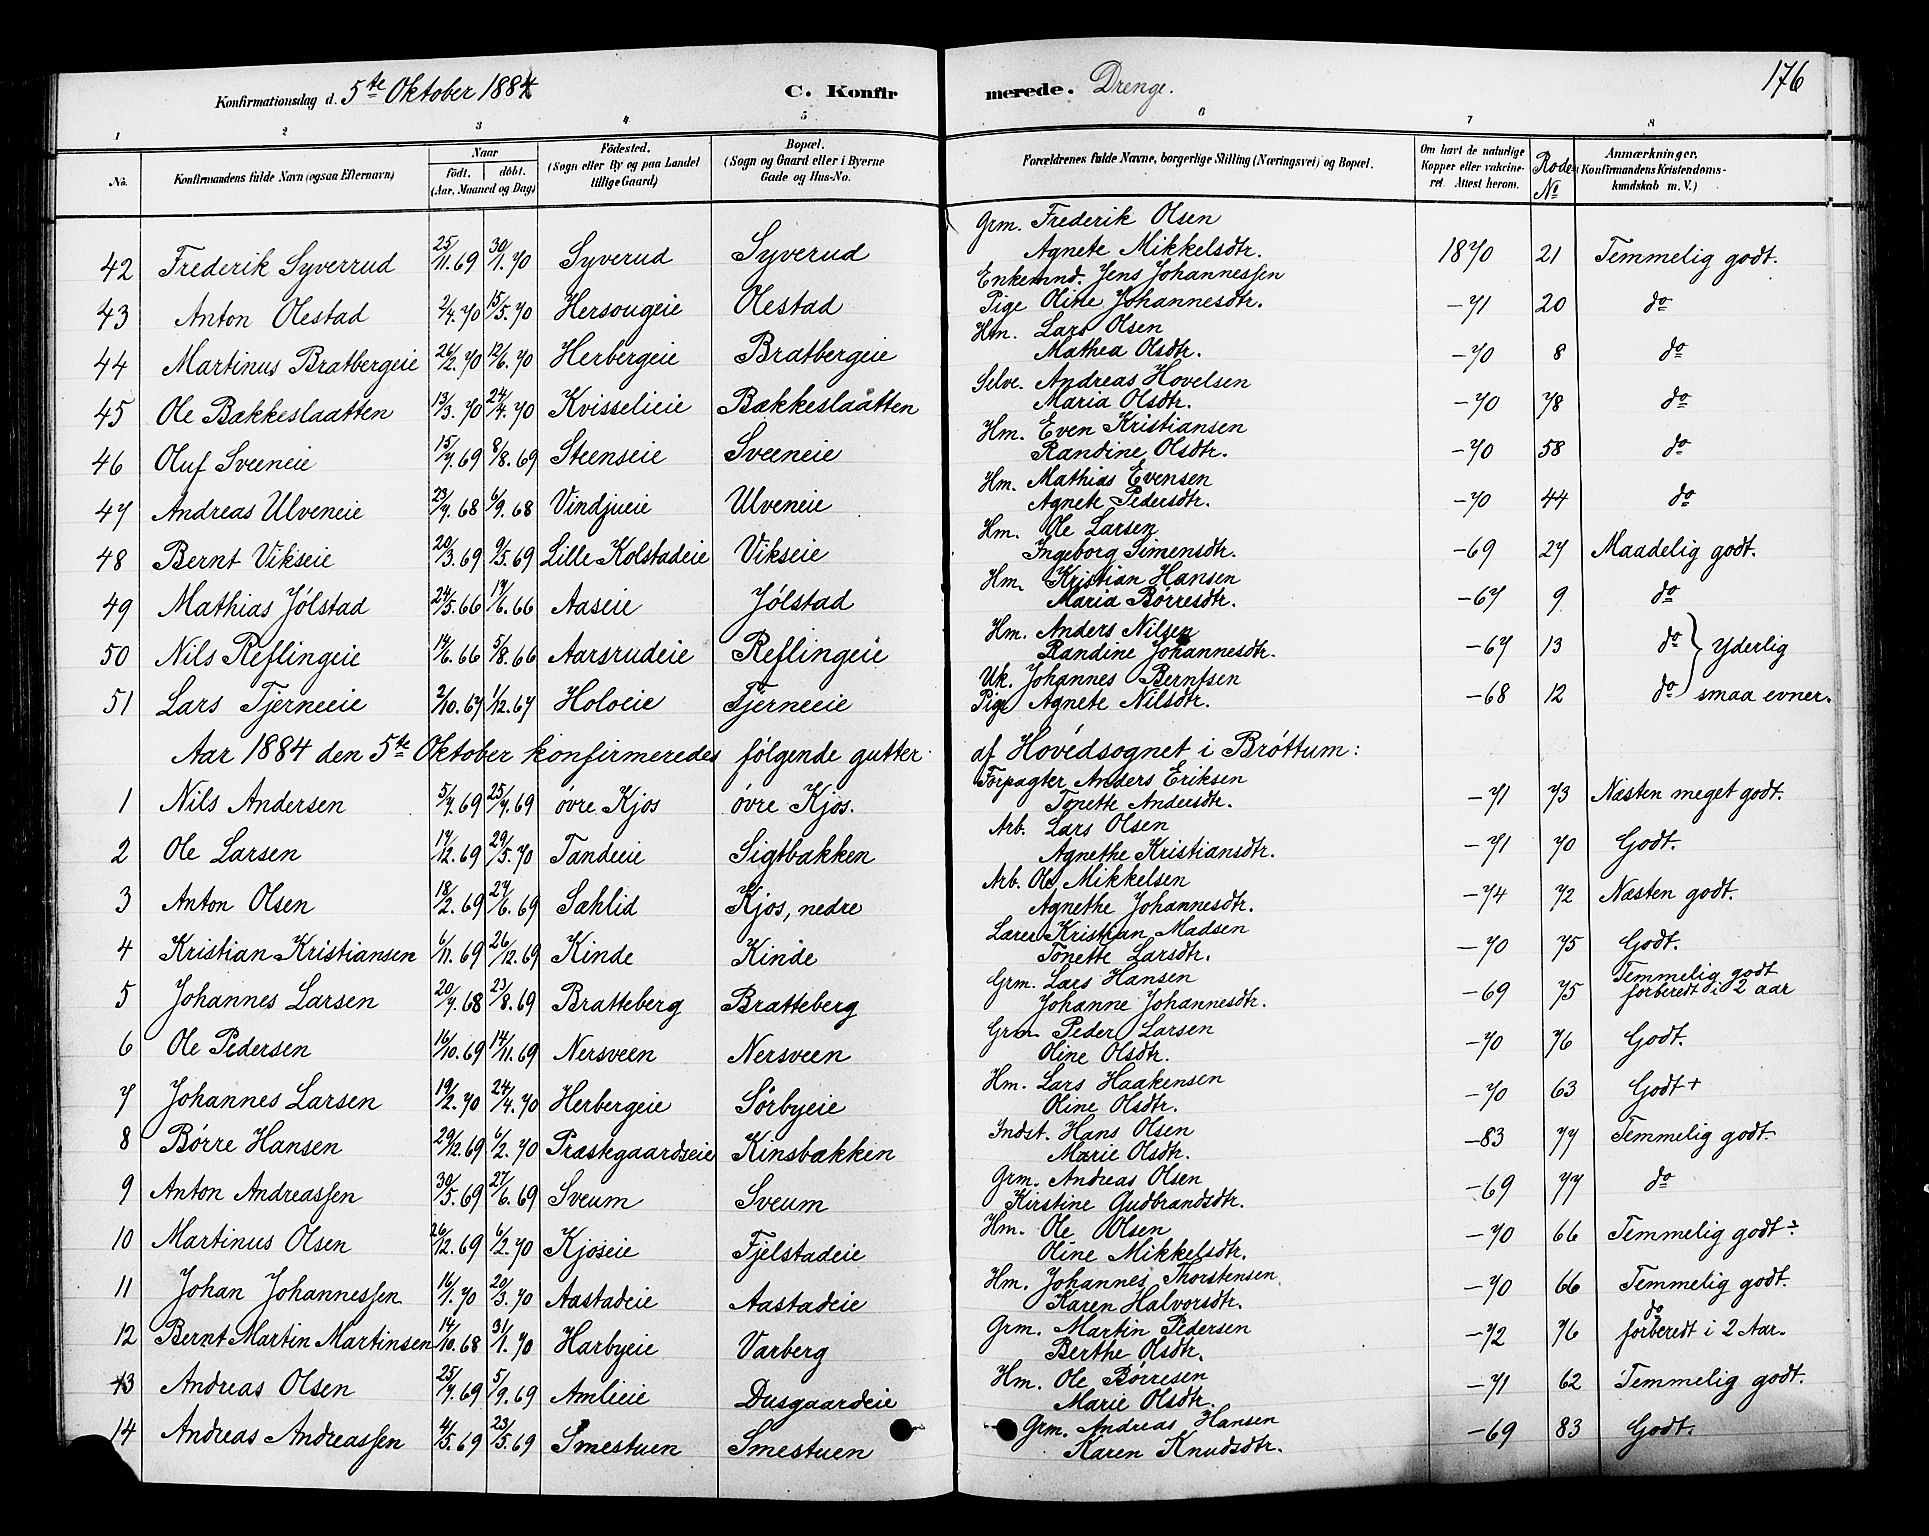 Konfirmationsdag d. 5te Oktober 1884 C. Konfirmerede. Drenge. 176
1 2 3 4 5 6 7 8
No. Konfirmandens fulde Navn (ogsaa Efternavn) Naar født. døbt. (Aar, Maaned og Dag) Fødested. (Sogn eller By og paa Landet tillige Gaard) Bopæl. (Sogn og Gaard eller i Byerne Gade og Hus-No. Forældrenes fulde Navne, borgerlige Stilling (Næringsvei) og Bopæl. Om havt de naturlige Kopper eller vakcineret. Attest herom. Rode No Anmærkninger. (Konfirmandens Kristendomskundskab m. V.)
42 Frederik Syverrud 25/11.69 30/1.70 Syverud Syverud Grm. Frederik Olsen Agnete Mikkelsdtr. 1870 21 Temmelig godt.
43 Anton Olestad 2/4.70 15/5.70 Hersougeie Olestad Enkemnd. Jens Johannessen Pige Oline Johannesdtr. -71 20 do
44 Martinus Bratbergeie 26/2.70 12/6.70 Herbergeie Bratbergeie Hm. Lars Olsen Mathea Olsdtr. -70 8 do
45 Ole Bakkeslaatten 13/3.70 24/4.70 Kvisselieie Bakkeslaatten Selve. Andreas Hovelsen Maria Olsdtr. -70 78 do
46 Oluf Sveeneie 15/7.69 8/8.69 Steenseie Sveeneie Hm. Even Kristiansen Randine Olsdtr. -70 58 do
47 Andreas Ulveneie 23/7.68 6/9.68 Vindjueie Ulveneie Hm. Mathias Evensen Agnete Pedersdtr. -70 44 do
48 Bernt Vikseie 20/3.69 9/5.69 Lille Kolstadeie Vikseie Hm. Ole Larsen Ingeborg Simensdtr. -69 27 Maadelig godt.
49 Mathias Jølstad 24/5.66 17/6.66 Aaseie Jølstad Hm. Kristian Hansen Maria Børresdtr. -67 9 do
50 Nils Reflingeie 14/6.66 5/8.66 Aarsrudeie Reflingeie Hm. Anders Nilsen Randine Johannesdtr. -67 13 do } Yderlig
51 Lars Tjerneeie 2/10.67 1/12.67 Holoeie Tjerneeie Uk. Johannes Berntsen Pige Agnete Nilsdtr. -68 12 do } smaa evner.
Aar 1884 den 5te Oktober konfirmeredes følgende gutter af Hovedsognet i Brøttum:
1 Nils Andersen 5/7.69 25/7.69 øvre Kjos øvre Kjos. Forpagter Anders Eriksen Tonette Andersdtr. -71 73 Næsten meget godt.
2 Ole Larsen 17/12.69 29/5.70 Tandeie Sigtbakken Arb. Lars Olsen Agnethe Kristiansdtr. -71 70 Godt.
3 Anton Olsen 18/2.69 27/6.69 Sæhlid Kjos, nedre Arb. Ole Mikkelsen Agnethe Johannesdtr. -74 72 Næsten godt.
4 Kristian Kristiansen 6/11.69 26/12.69 Kinde Kinde Lærer Kristian Madsen Tonette Larsdtr. -70 75 Godt.
5 Johannes Larsen 20/7.68 23/8.69 Bratteberg Bratteberg Grm. Lars Hansen Johanne Johannesdtr. -69 75 Temmelig godt forberedt i 2 aar
6 Ole Pedersen 16/10.69 14/11.69 Nersveen Nersveen Grm Peder Larsen Oline Olsdtr. -70 76 Godt.
7 Johannes Larsen 19/2.70 24/4.70 Herbergeie Sørbyeie Hm. Lars Haakensen Oline Olsdtr. -70 63 Godt +
8 Børre Hansen 29/12.69 6/2.70 Præstgaardseie Kinsbakken Indst. Hans Olsen Marie Olsdtr. -83 77 Temmelig godt.
9 Anton Andreassen 30/5.69 27/6.69 Sveum Sveum Grm. Andreas Olsen Kirstine Gudbrandsdtr. -69 77 do
10 Martinus Olsen 26/12.69 6/2.70 Kjoseie Fjelstadeie Hm. Ole Olsen Oline Mikkelsdtr. -70 66 Temmelig godt
11 Johan Johannessen 16/1.70 20/3.70 Aastadeie Aastadeie Hm. Johannes Thorstensen Karen Halvorsdtr. -70 66 Temmelig godt.
12 Bernt Martin Martinsen 14/10.68 31/1.70 Harbyeie Varberg Grm. Martin Pedersen Berthe Olsdtr. -72 76 do forberedt i 2 Aar.
13 Andreas Olsen 25/7.69 5/9.69 Amlieie Dusgaardeie Hm. Ole Børresen Marie Olsdtr. -71 62 Temmelig godt.
14 Andreas Andreassen 4/5.69 23/5.69 Smestuen Smestuen Grm. Andreas Hansen Karen Knudsdtr. -69 83 Godt.